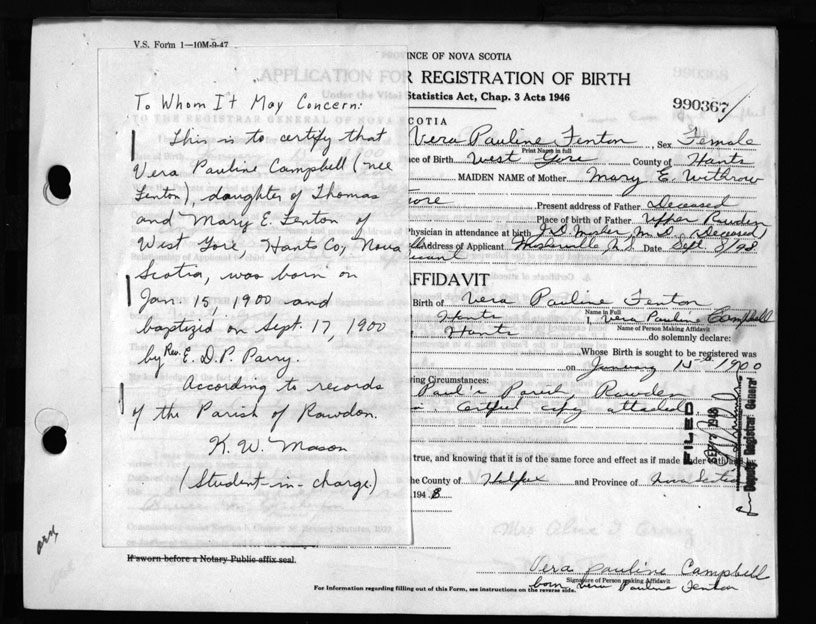 V.S. Form 1—10M-9-47
To Whom It May Concern:
This is to certify that
Vera Pauline Campbell (nee
Fenton), daughter of Thomas
and Mary E. Fenton of
West Gore, Hants Co, Nova
Scotia, was born on
Jan. 15, 1900 and
baptizid on Sept. 17, 1900
by Rev. E. D. P. Parry.
According to records
of the Parish of Rawdon.
K. W. Mason
(Student-in-charge.)
NCE OF NOVA SCOTIA
R REGISTRATION OF BIRTH
Statistics Act, Chap. 3 Acts 1946
990367
COTIA
Vera Pauline Fenton, Sex Female
Print Name in full
ce of Birth West Gore County of Hants
MAIDEN NAME of Mother Mary E. Withrow
ore Present address of Father Deceased
Place of birth of Father Upper Rawdon
Physician in attendance at birth J.D. M.D. (Deceased)
Address of Applicant N.S. Date Sept. 8/48
icant
FFIDAVIT
Birth of Vera Pauline Fenton
Name in Full
Hants I, Vera Pauline Campbell
Name of Person Making Affidavit
Hants do solemnly declare:
Whose Birth is sought to be registered was
on January 15th 1900
ring Circumstances:
Paul's Parish Rawdon
attached
FILED
SEP 7 1948
Deputy Registrar General
true, and knowing that it is of the same force and effect as if made under oath
he County of Halifax and Province of Nova Scotia
194 8
If sworn before a Notary Public affix seal.
Vera Pauline Campbell
Signature of Person making Affidavit
born Vera Pauline Fenton
For Information regarding filling out of this Form, see instructions on the reverse side.